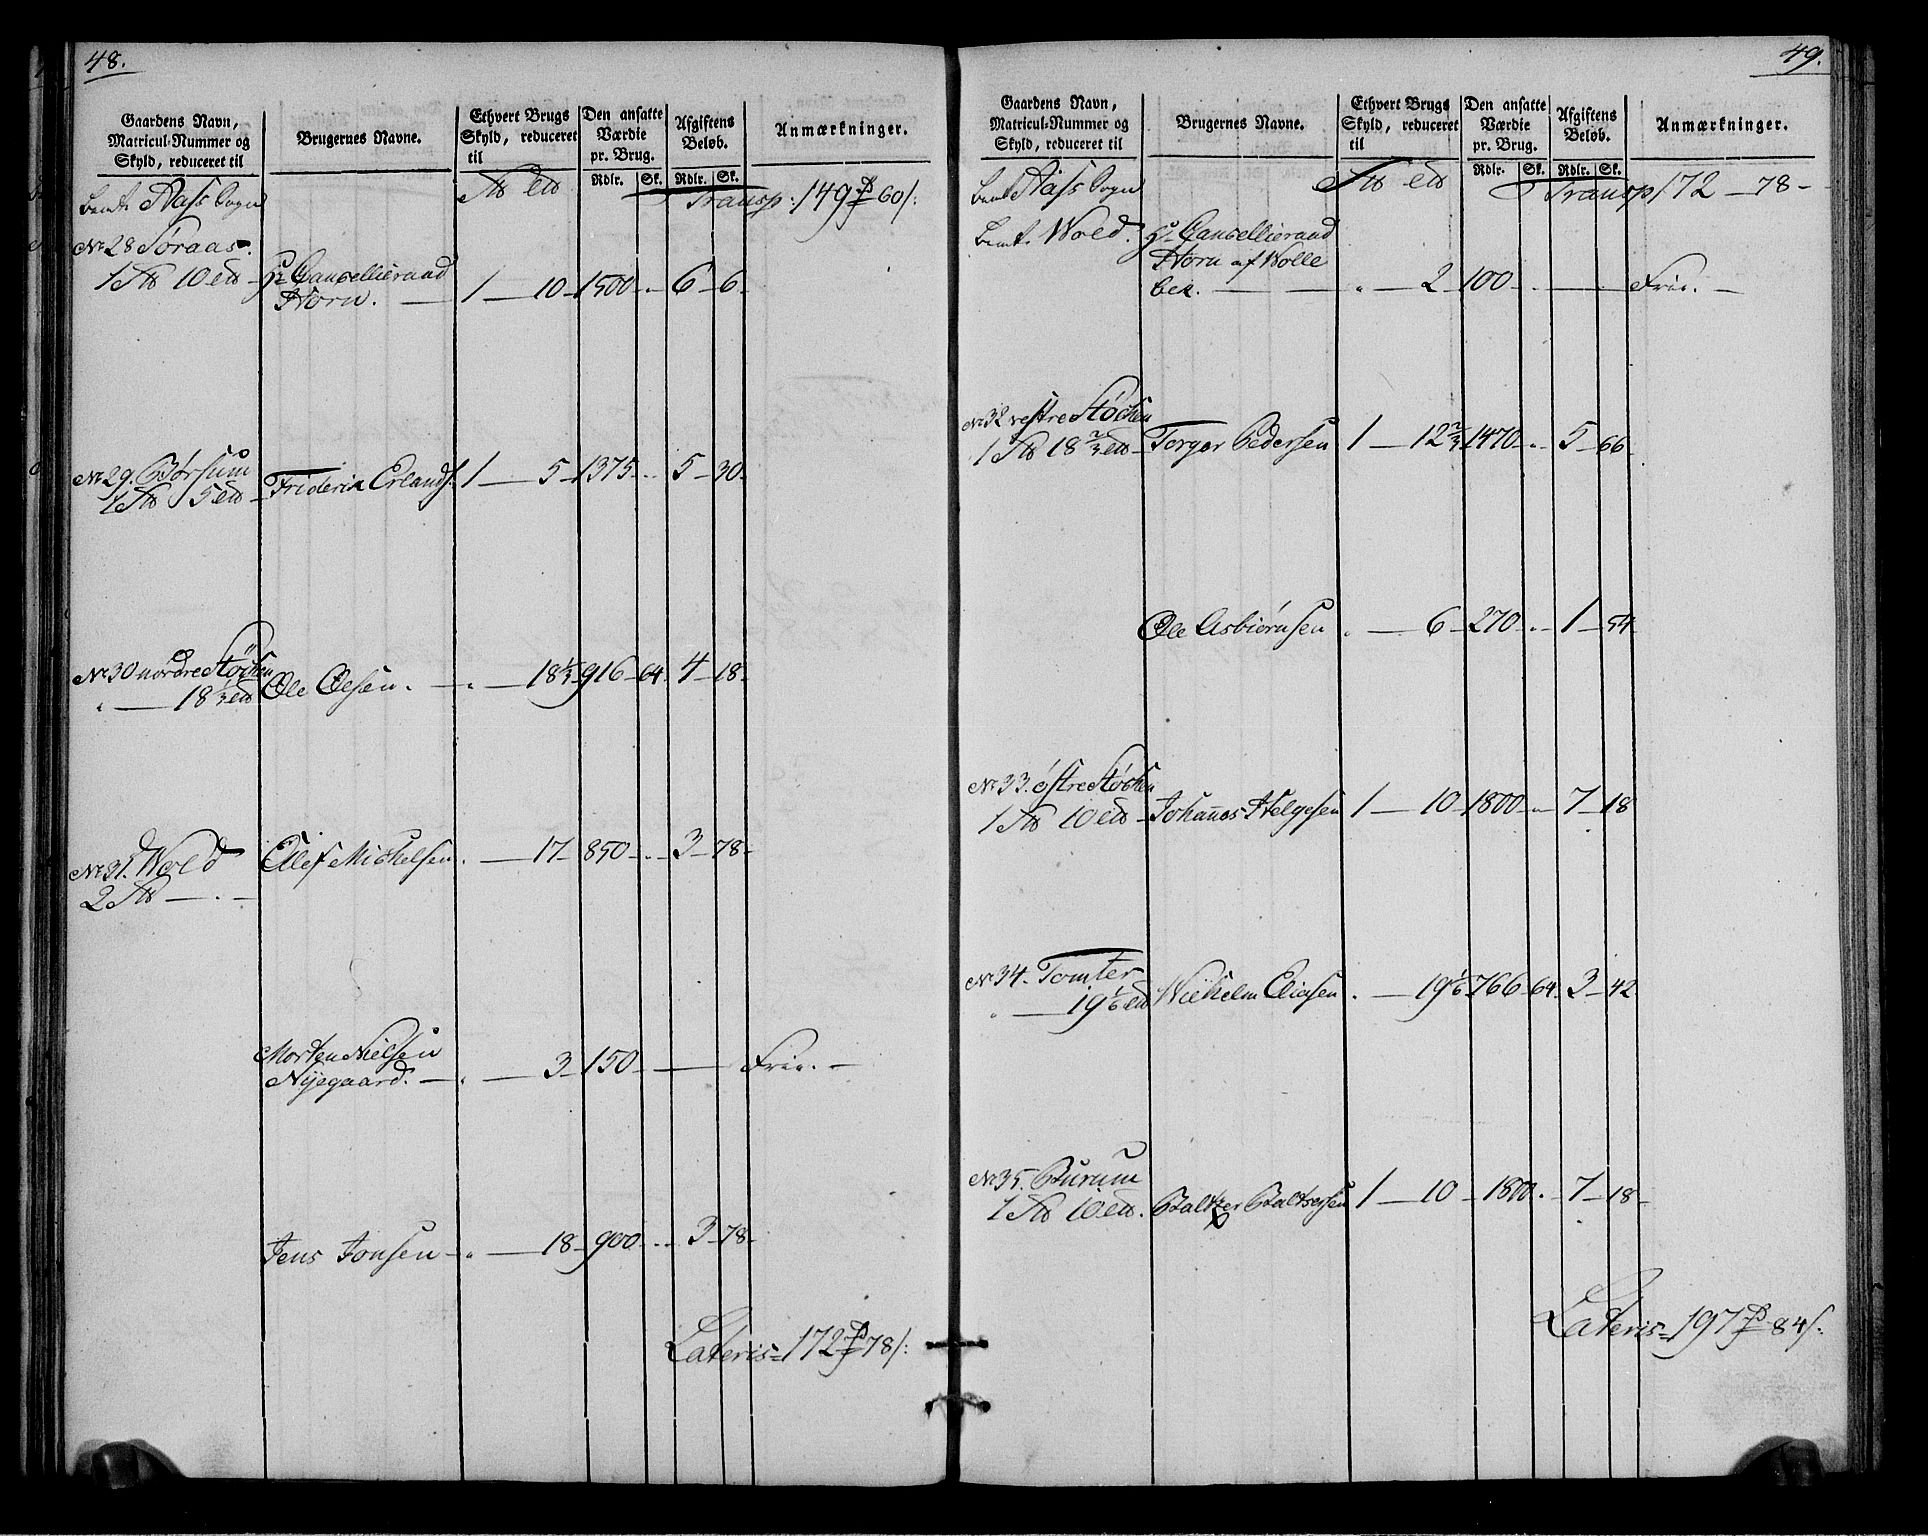 48.
Gaardens Navn,
Matricul-Nummer og
Skyld, reduceret til
Brugernes Navne.
Ethvert Brugs
Skyld, reduceret
til
Den ansatte
Værdie
pr. Brug.
Rdlr. Sk.
Afgiftens
Beløb.
Rdlr. Sk.
Anmærkninger.
Aass Sogn
Transp: 149 60
No 28 Søraas.
1 10 Hr Cancellieraad
Horn. 1 10 1500 6 6
No 29. Børsum
1 5 Friderik Erlands. 1 5 1375 5 30
No 30 nordre Støchen
18 1/3 Ole Olsen. 18 1/3 916 64 4 18
No 31. Wold
2
Ellef Michelsen. 17 850 3 78
Morten Nielsen
Nyegaard. 3 150 Frie.
Jens Jonsen 18 900 3 78
Lateris 172 78
49.
Gaardens Navn,
Matricul-Nummer og
Skyld, reduceret til
Brugernes Navne.
Ethvert Brugs
Skyld, reduceret
til
Den ansatte
Værdie
pr. Brug.
Rdlr. Sk.
Afgiftens
Beløb.
Rdlr. Sk.
Anmærkninger.
Aass Sogn
Transp 172 78
Wold. Hr Cancellieraad
Horn af Wolle
bek. 2 100 Frie.
No 32 vestre Støchen
1 18 2/3 Torger Pedersen 1 12 2/3 1470 5 66
Ole Asbiørnsen 6 270 1 54
No 33. østre Støchen
1 10 Johannes Helgesen 1 10 1800 7 18
No 34. Tomter
19 1/6 Wilhelm Eliasen 19 1/6 766 64 3 42
No 35. Burum
1 10 Baltzer Baltsersen 1 10 1800 7 18
Lateris 197 84